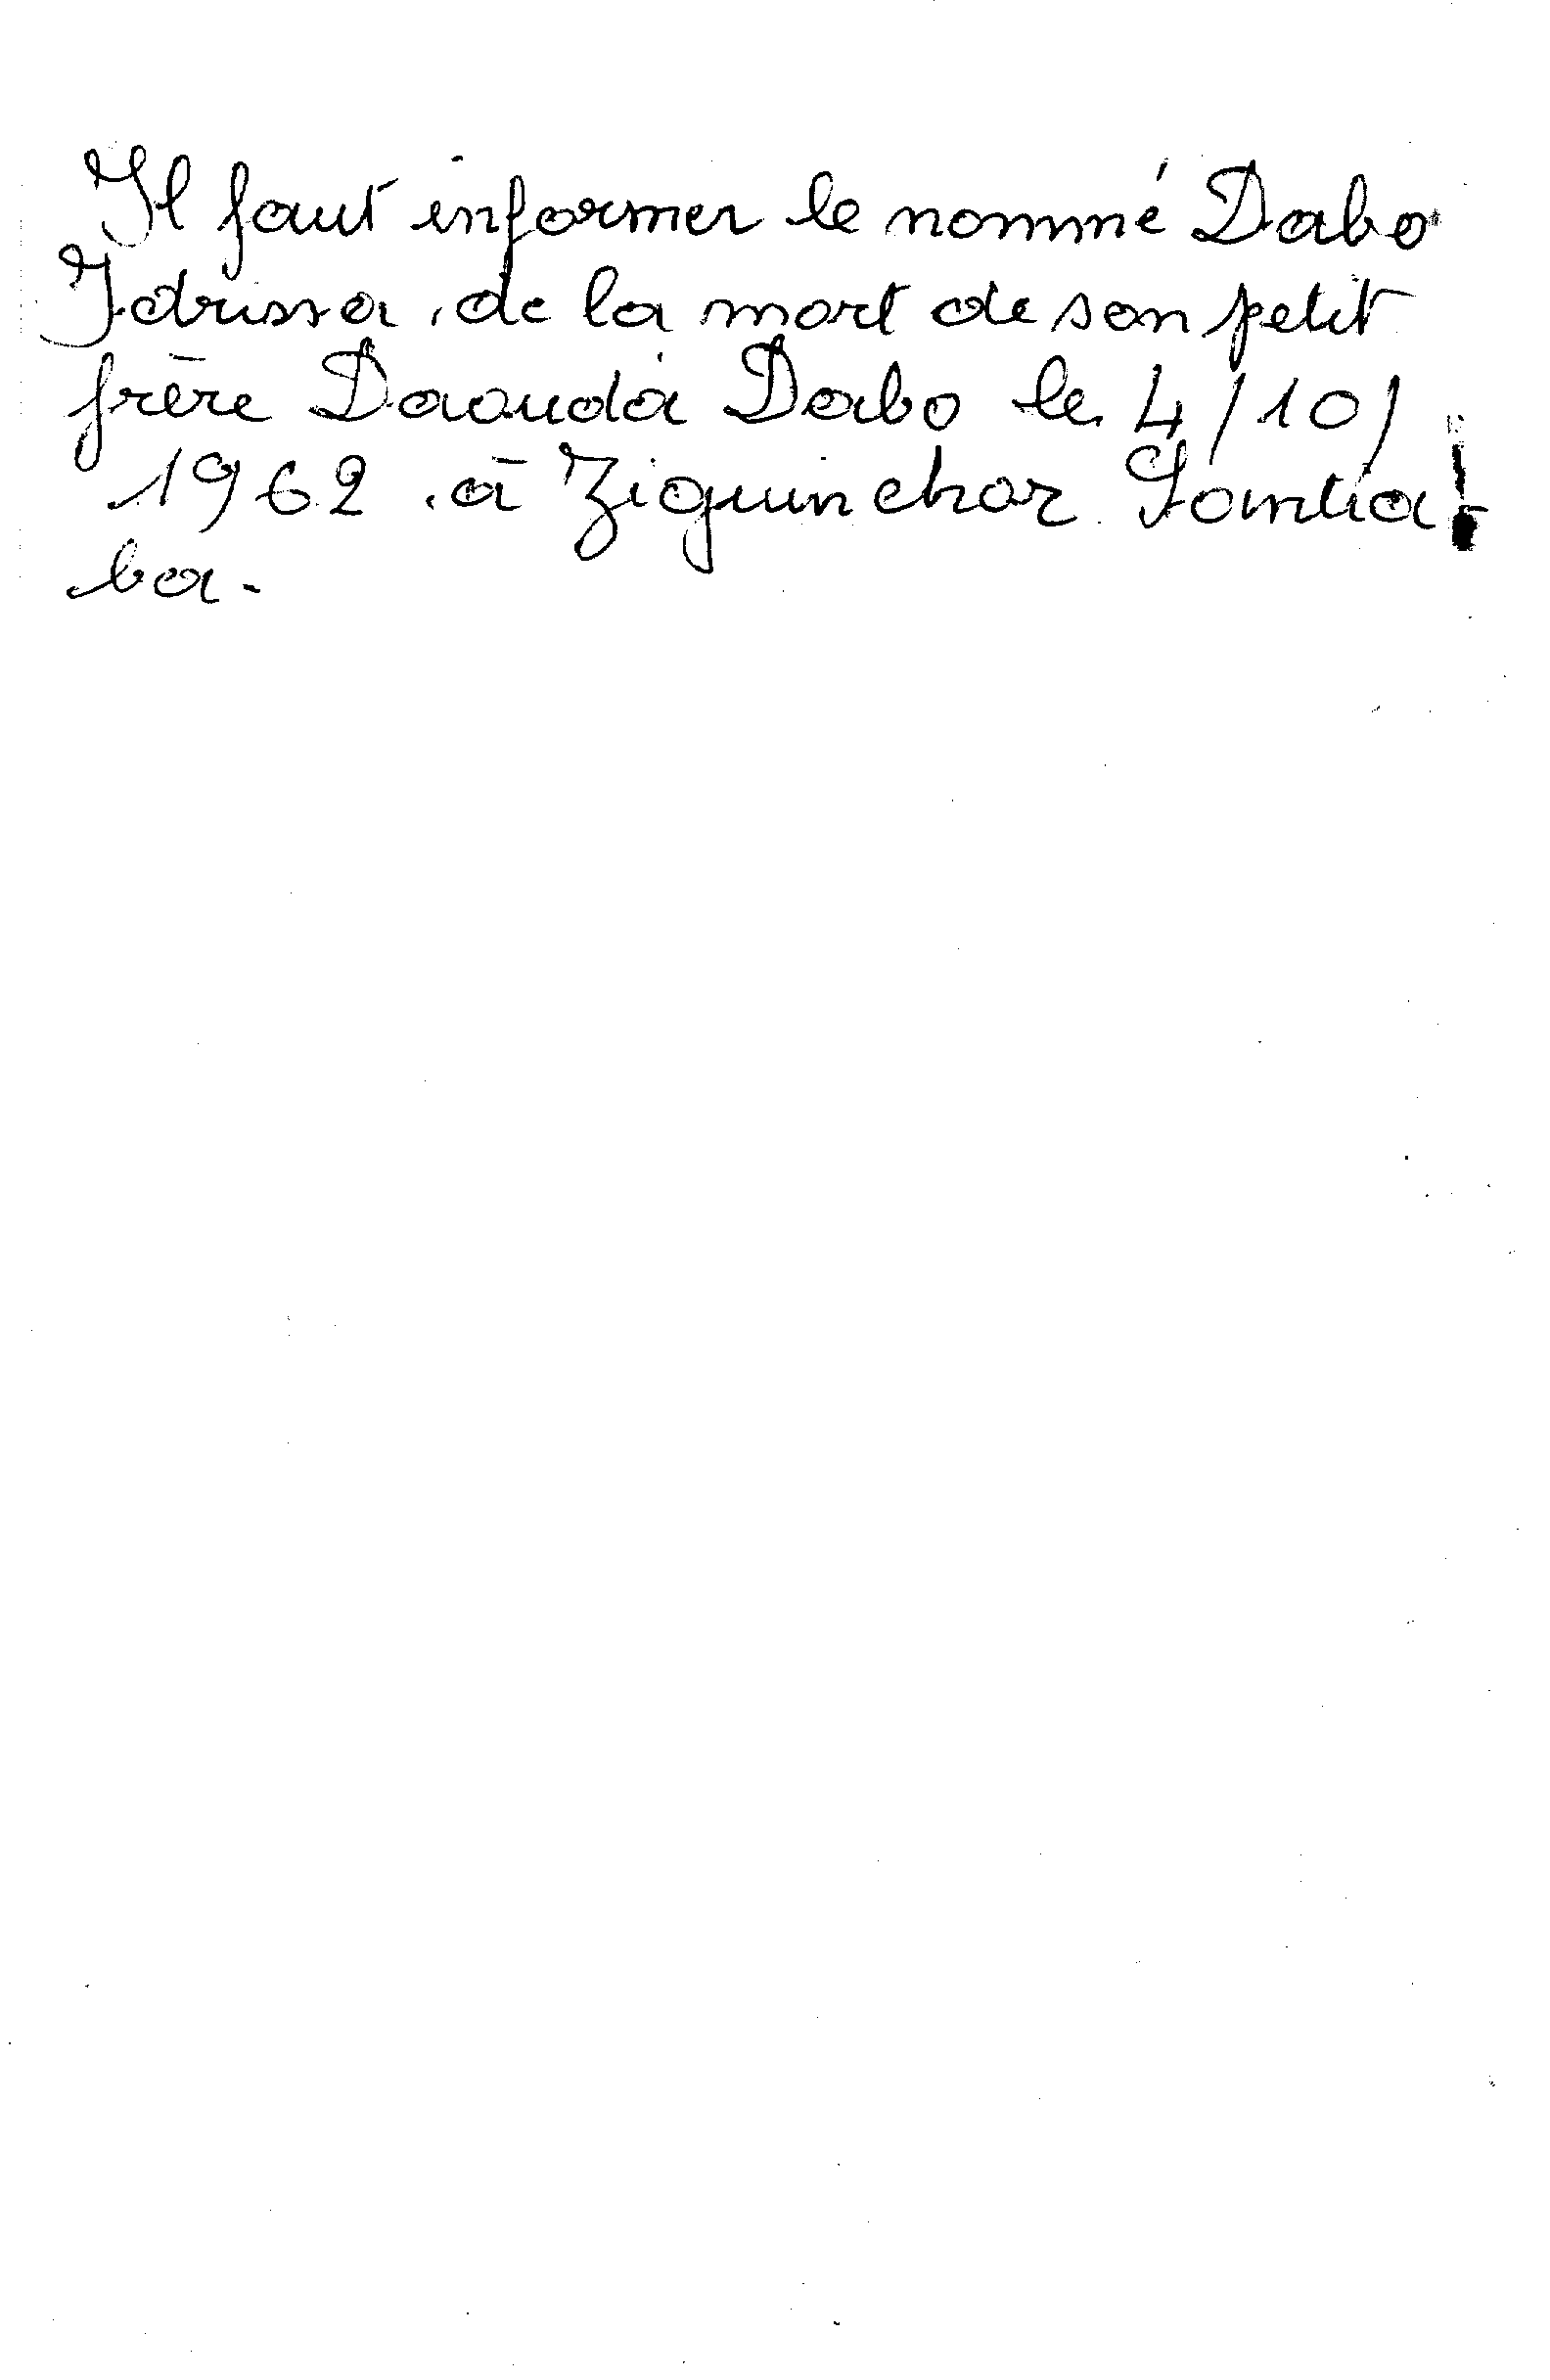 Il faut informer le nommé Dabo
Idrissa, de la mort de son petit
frère Daouda Dabo le 4/10/
1962 à Ziguinchor Santia-
ba.